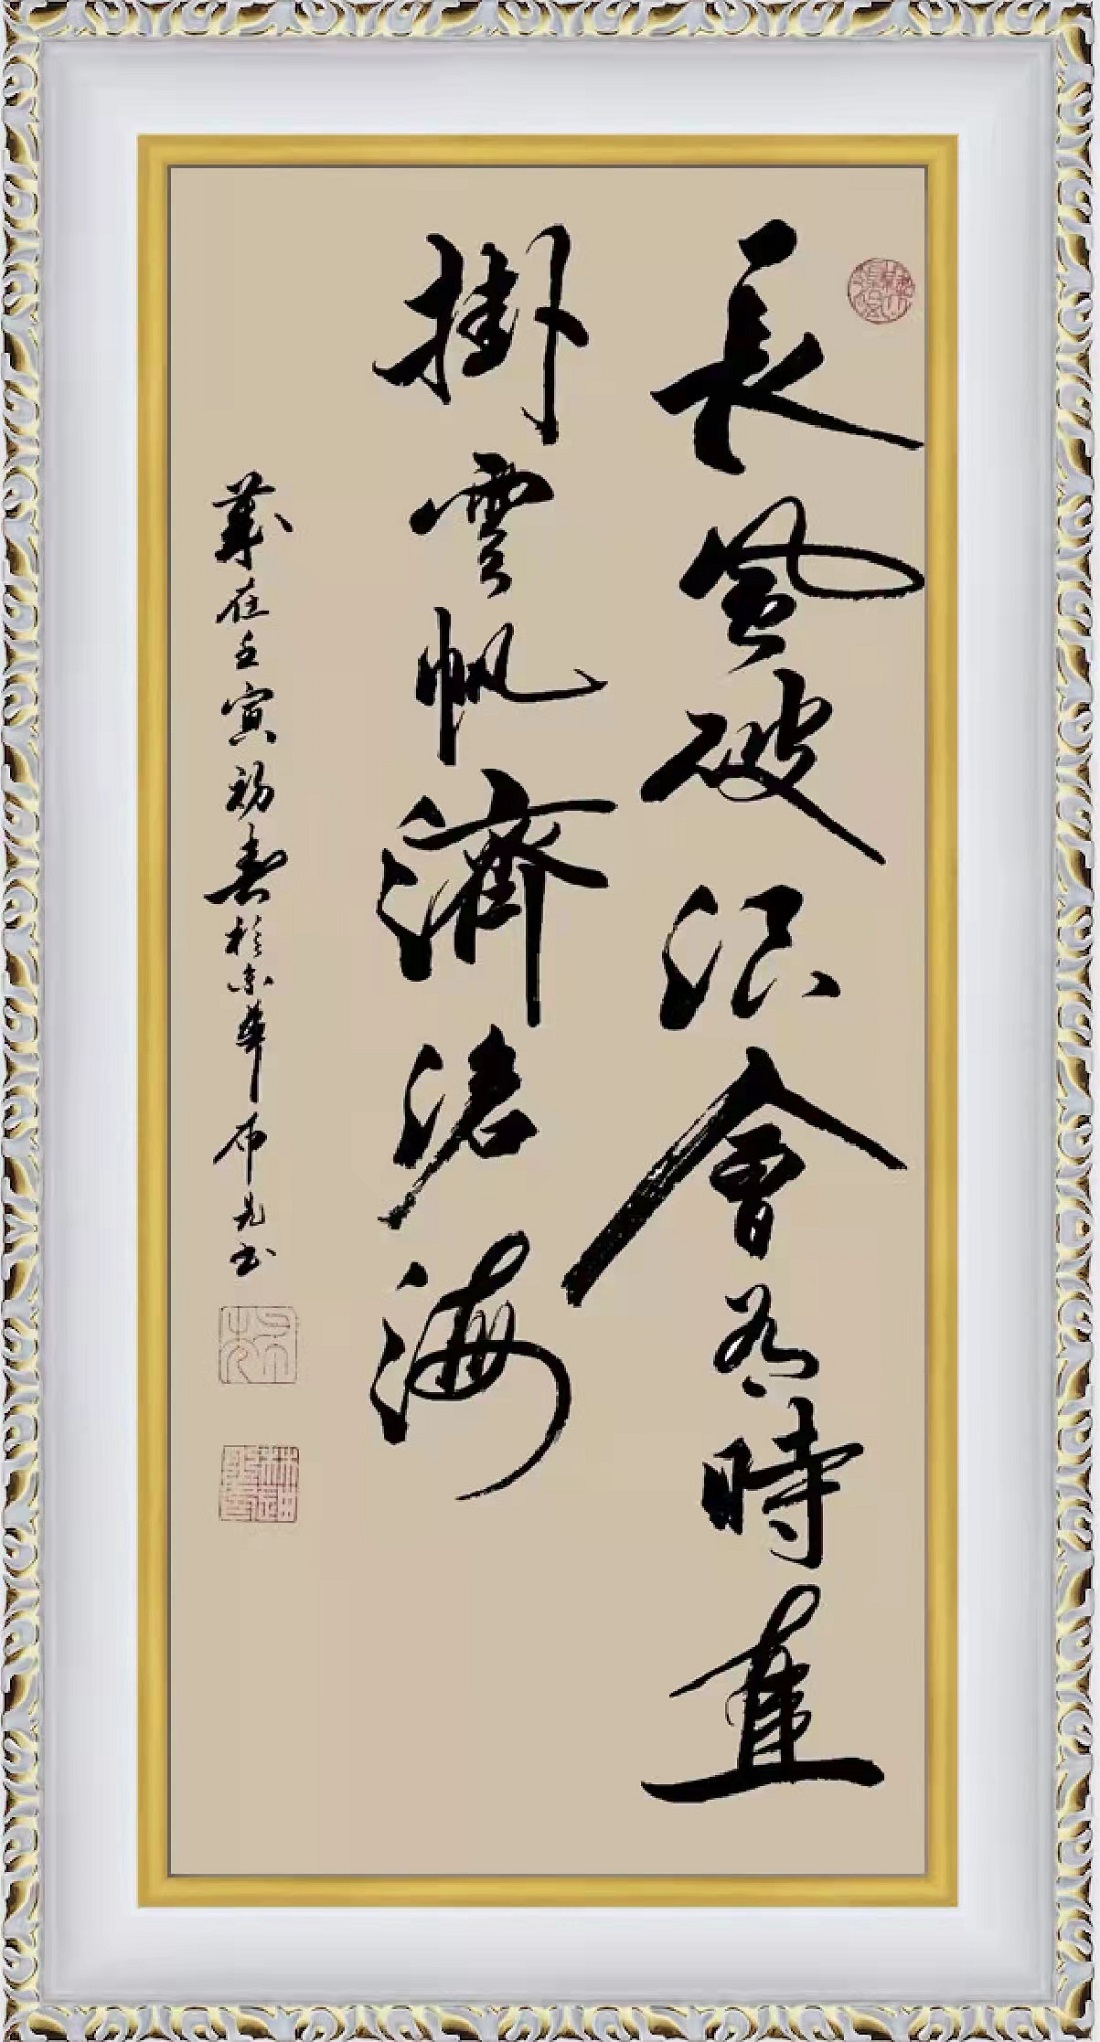 長風破浪會有時直
掛雲帆濟滄海
歲在壬寅初春於京華布凡書